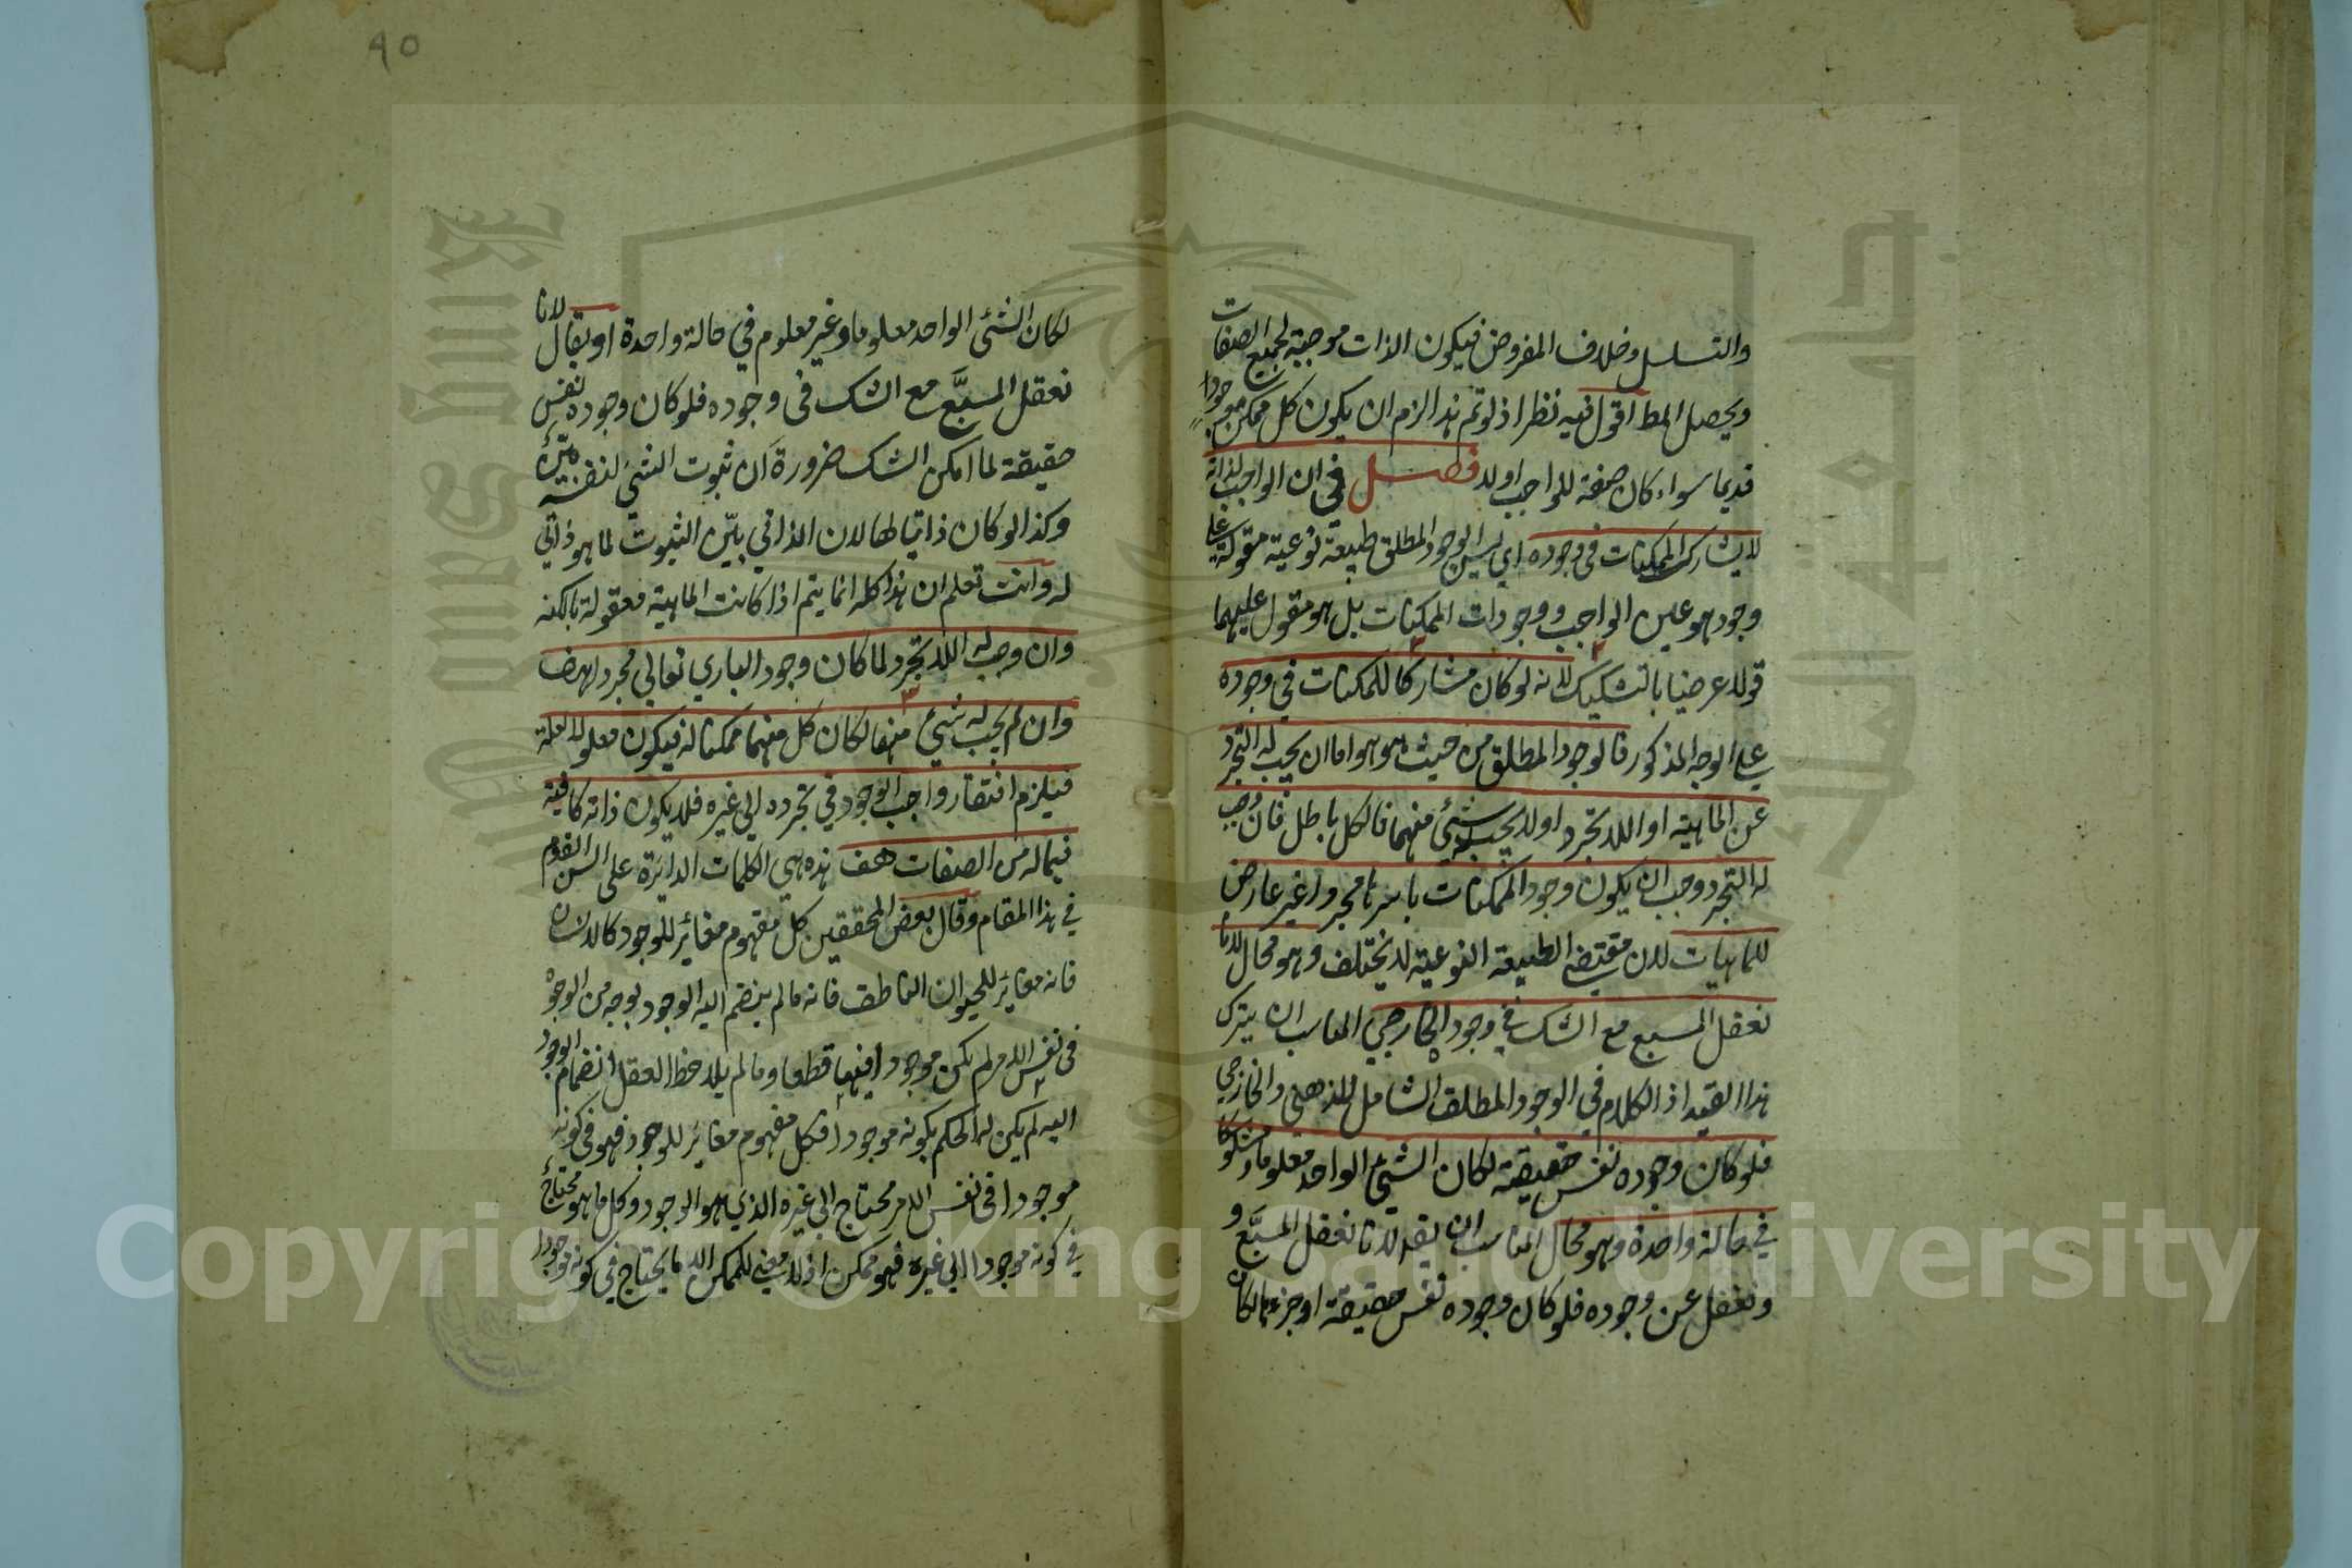 والتسلسل وخلاف المفروض فيكون الذات موجبة لجميع الصفات
ويحصل المط اقول فيه نظر اذ لو تم هذا لزم ان يكون كل ممكن موجودا
قديما سواء كان صفة للواجب اولا فصل في ان الواجب لذاته
لا يشارك الممكنات في وجوده اي ليس الوجود المطلق طبيعة نوعية مقولة على
وجود هو عين الواجب ووجودات الممكنات بل هو مقول عليهما
قولا عرضيا بالتشكيك لانه لو كان مشاركا للممكنات في وجوده
على الوجه المذكور فالوجود المطلق من حيث هو هو اما ان يجب له التجرد
عن الماهية او اللاتجرد او لا يجب له شئ منهما فالكل باطل فان وجب
له التجرد وجب ان يكون وجود الممكنات باسرها مجردا غير عارض
للماهيات لان مقتضى الطبيعة النوعية لا يختلف وهو محال لانا
نعقل المسبع مع الشك في وجوده الخارجي المناسب ان يترك
هذا القيد اذ الكلام في الوجود المطلق الشامل للذهني والخارجي
فلو كان وجوده نفس حقيقته لكان الشئ الواحد معلوما ومشكوكا
في حالة واحدة وهو محال المناسب ان يقول لانا نعقل المسبَّع و
ونغفل عن وجوده فلو كان وجوده نفس حقيقته او جزءها لكان
٩٥
لكان الشئ الواحد معلوما وغير معلوم في حالة واحدة او يقال لانا
نعقل المسبَّع مع الشك في وجوده فلو كان وجوده نفس
حقيقته لما امكن الشك ضرورة ان ثبوت الشئ لنفسه بيّن
وكذا لو كان ذاتيا لها لان الذاتي بيّن الثبوت لما هو ذاتي
له وانت تعلم ان هذا كله انما يتم اذا كانت الماهية معقولة بالكنه
وان وجب له اللاتجرد لما كان وجود الباري تعالى مجردا هف
وان لم يجب له شئ منهما لكان كل منهما ممكنا له فيكون معلولا لعلة
فيلزم افتقار واجب الوجود في تجرده الى غيره فلا يكون ذاته كافية
فيما له من الصفات هف هذه هي الكلمات الدائرة على السن القوم
في هذا المقام وقال بعض المحققين كل مفهوم مغائر للوجود كالانسان
فانه مغائر للحيوان الناطق فانه مالم ينضم اليه الوجود بوجه من الوجوه
في نفس الامر لم يكن موجودا فيها قطعا ومالم يلاحظ العقل انضمام الوجود
اليه لم يكن له الحكم بكونه موجودا فكل مفهوم مغائر للوجود فهو في كونه
موجودا في نفس الامر محتاج الى غيره الذي هو الوجود وكل ما هو محتاج
في كونه موجودا الى غيره فهو ممكن اذ لا معنى للممكن الا ما يحتاج في كونه موجودا
Copyright © King Saud University